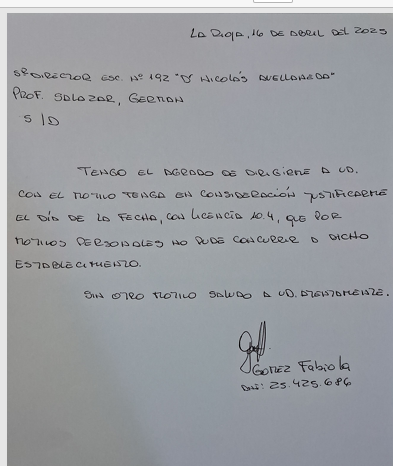 LA RIOJA, 16 DE ABRIL DEL 2025
SR DIRECTOR ESC. Nº 192 "Dr NICOLÁS AVELLANEDA"
PROF. SALAZAR, GERMAN
S / D
TENGO EL AGRADO DE DIRIGIRME A UD.
CON EL MOTIVO TENGA EN CONSIDERACIÓN JUSTIFICARME
EL DÍA DE LA FECHA, CON LICENCIA 10.4, QUE POR
MOTIVOS PERSONALES NO PUDE CONCURRIR A DICHO
ESTABLECIMIENTO.
SIN OTRO MOTIVO SALUDO A UD. ATENTAMENTE.
GOMEZ Fabiola
DNI: 25.425.686